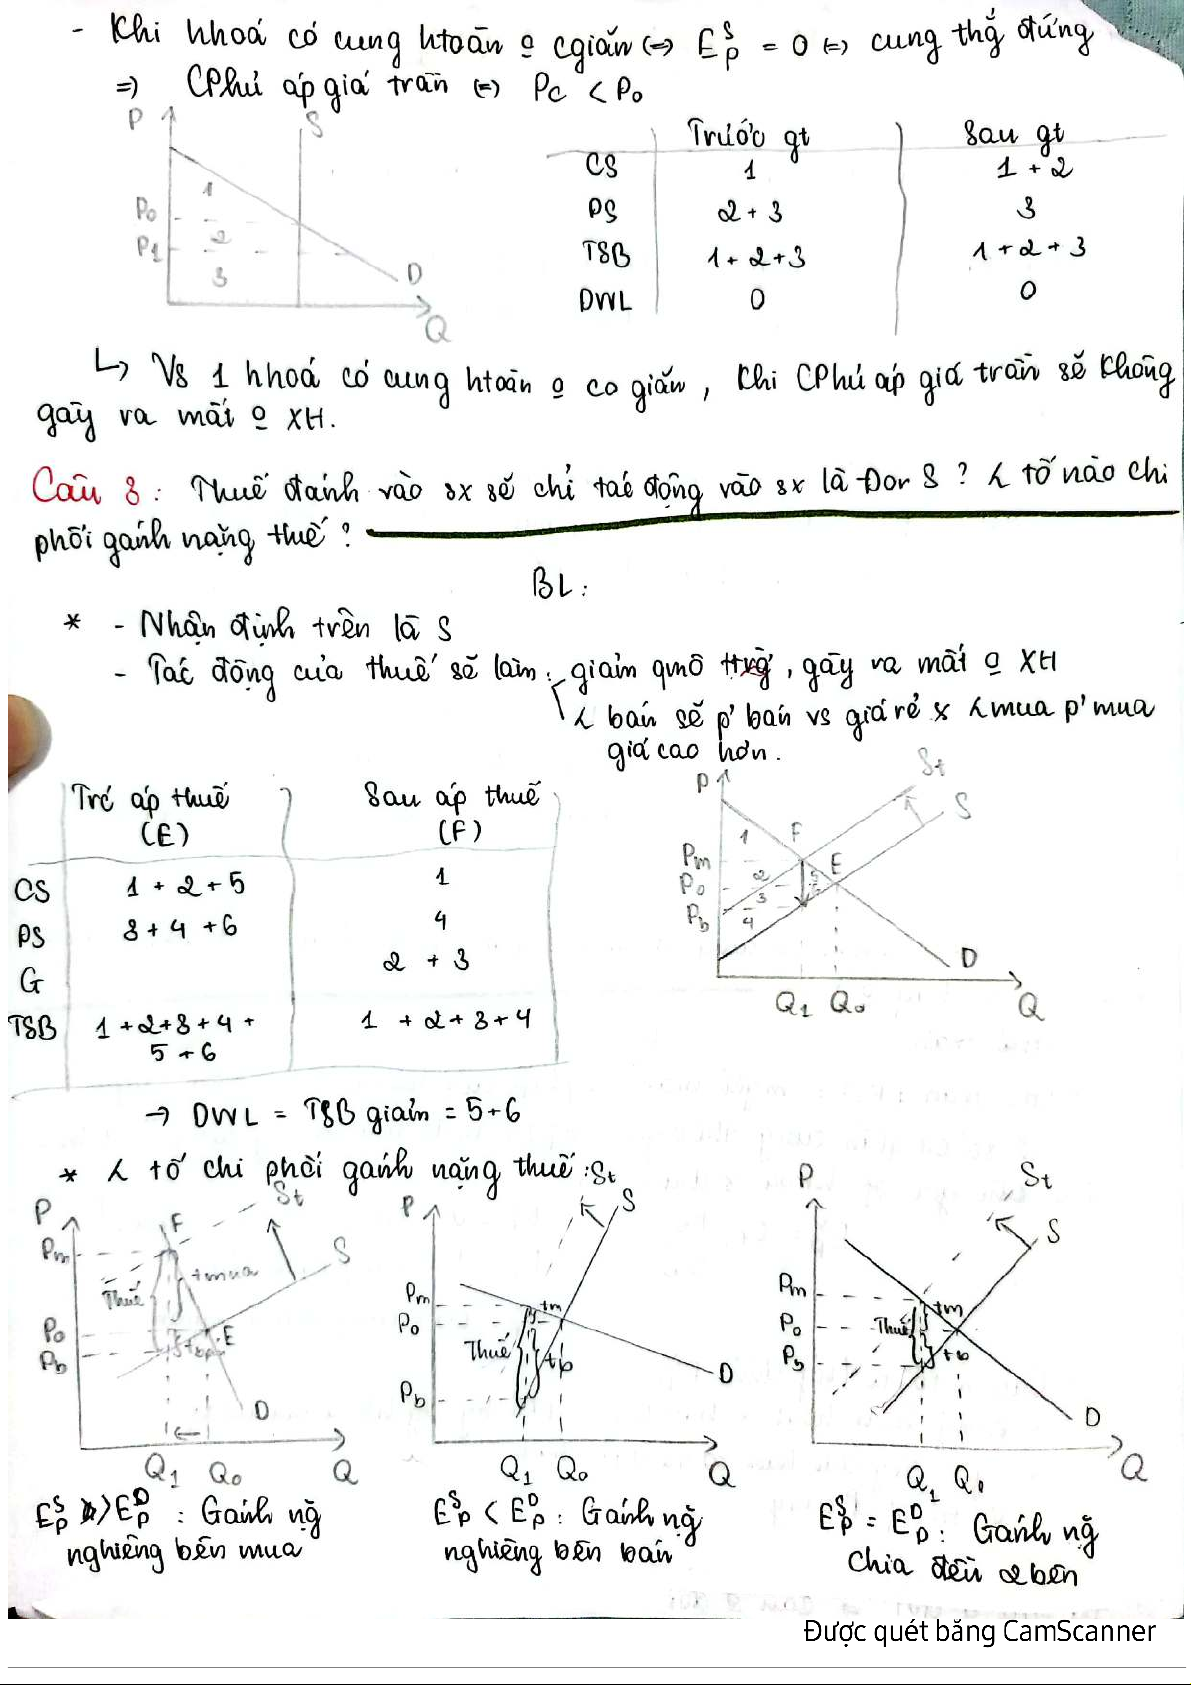 - Khi hhoá có cung htoàn o cgiãn <=> E_P^S = 0 <=> cung thg đứng
=> CPhủ áp giá trần <=> Pc < Po
P S
1
Po
2
P1
3
D
Q
Trước gt Sau gt
CS 1 1 + 2
PS 2 + 3 3
TSB 1 + 2 + 3 1 + 2 + 3
DWL 0 0
↳ Vs 1 hhoá có cung htoàn o co giãn, khi CPhủ áp giá trần sẽ không
gây ra mất o XH.
Câu 8: Thuế đánh vào sx sẽ chỉ tác động vào sx là Đ or S? tố nào chi
phối gánh nặng thuế?
BL:
* - Nhận định trên là S
- Tác động của thuế sẽ làm: giảm qmô ttrg, gây ra mất o XH
bán sẽ p' bán vs giá rẻ mua p' mua
giá cao hơn.
Trc áp thuế Sau áp thuế
(E) (F)
CS 1 + 2 + 5 1
PS 3 + 4 + 6 4
G 2 + 3
TSB 1 + 2 + 3 + 4 + 1 + 2 + 3 + 4
5 + 6
P St
S
1 F
Pm E
2
Po
3
Pb 4
D
Q1 Qo Q
→ DWL = TSB giảm = 5+6
* tố chi phối gánh nặng thuế:
P F St
Pm S
tmua
Thuế
Po E
Pb
D
Q1 Qo Q
E_P^S > E_P^D : Gánh nặg
nghiêng bên mua
P St S
Pm tm
Po
Thuế tb
Pb D
Q1 Qo Q
E_P^S < E_P^D : Gánh nặg
nghiêng bên bán
P St
S
Pm tm
Po Thuế
Pb tb
D
Q1 Qo Q
E_P^S = E_P^D : Gánh nặg
chia đều 2 bên
Được quét bằng CamScanner